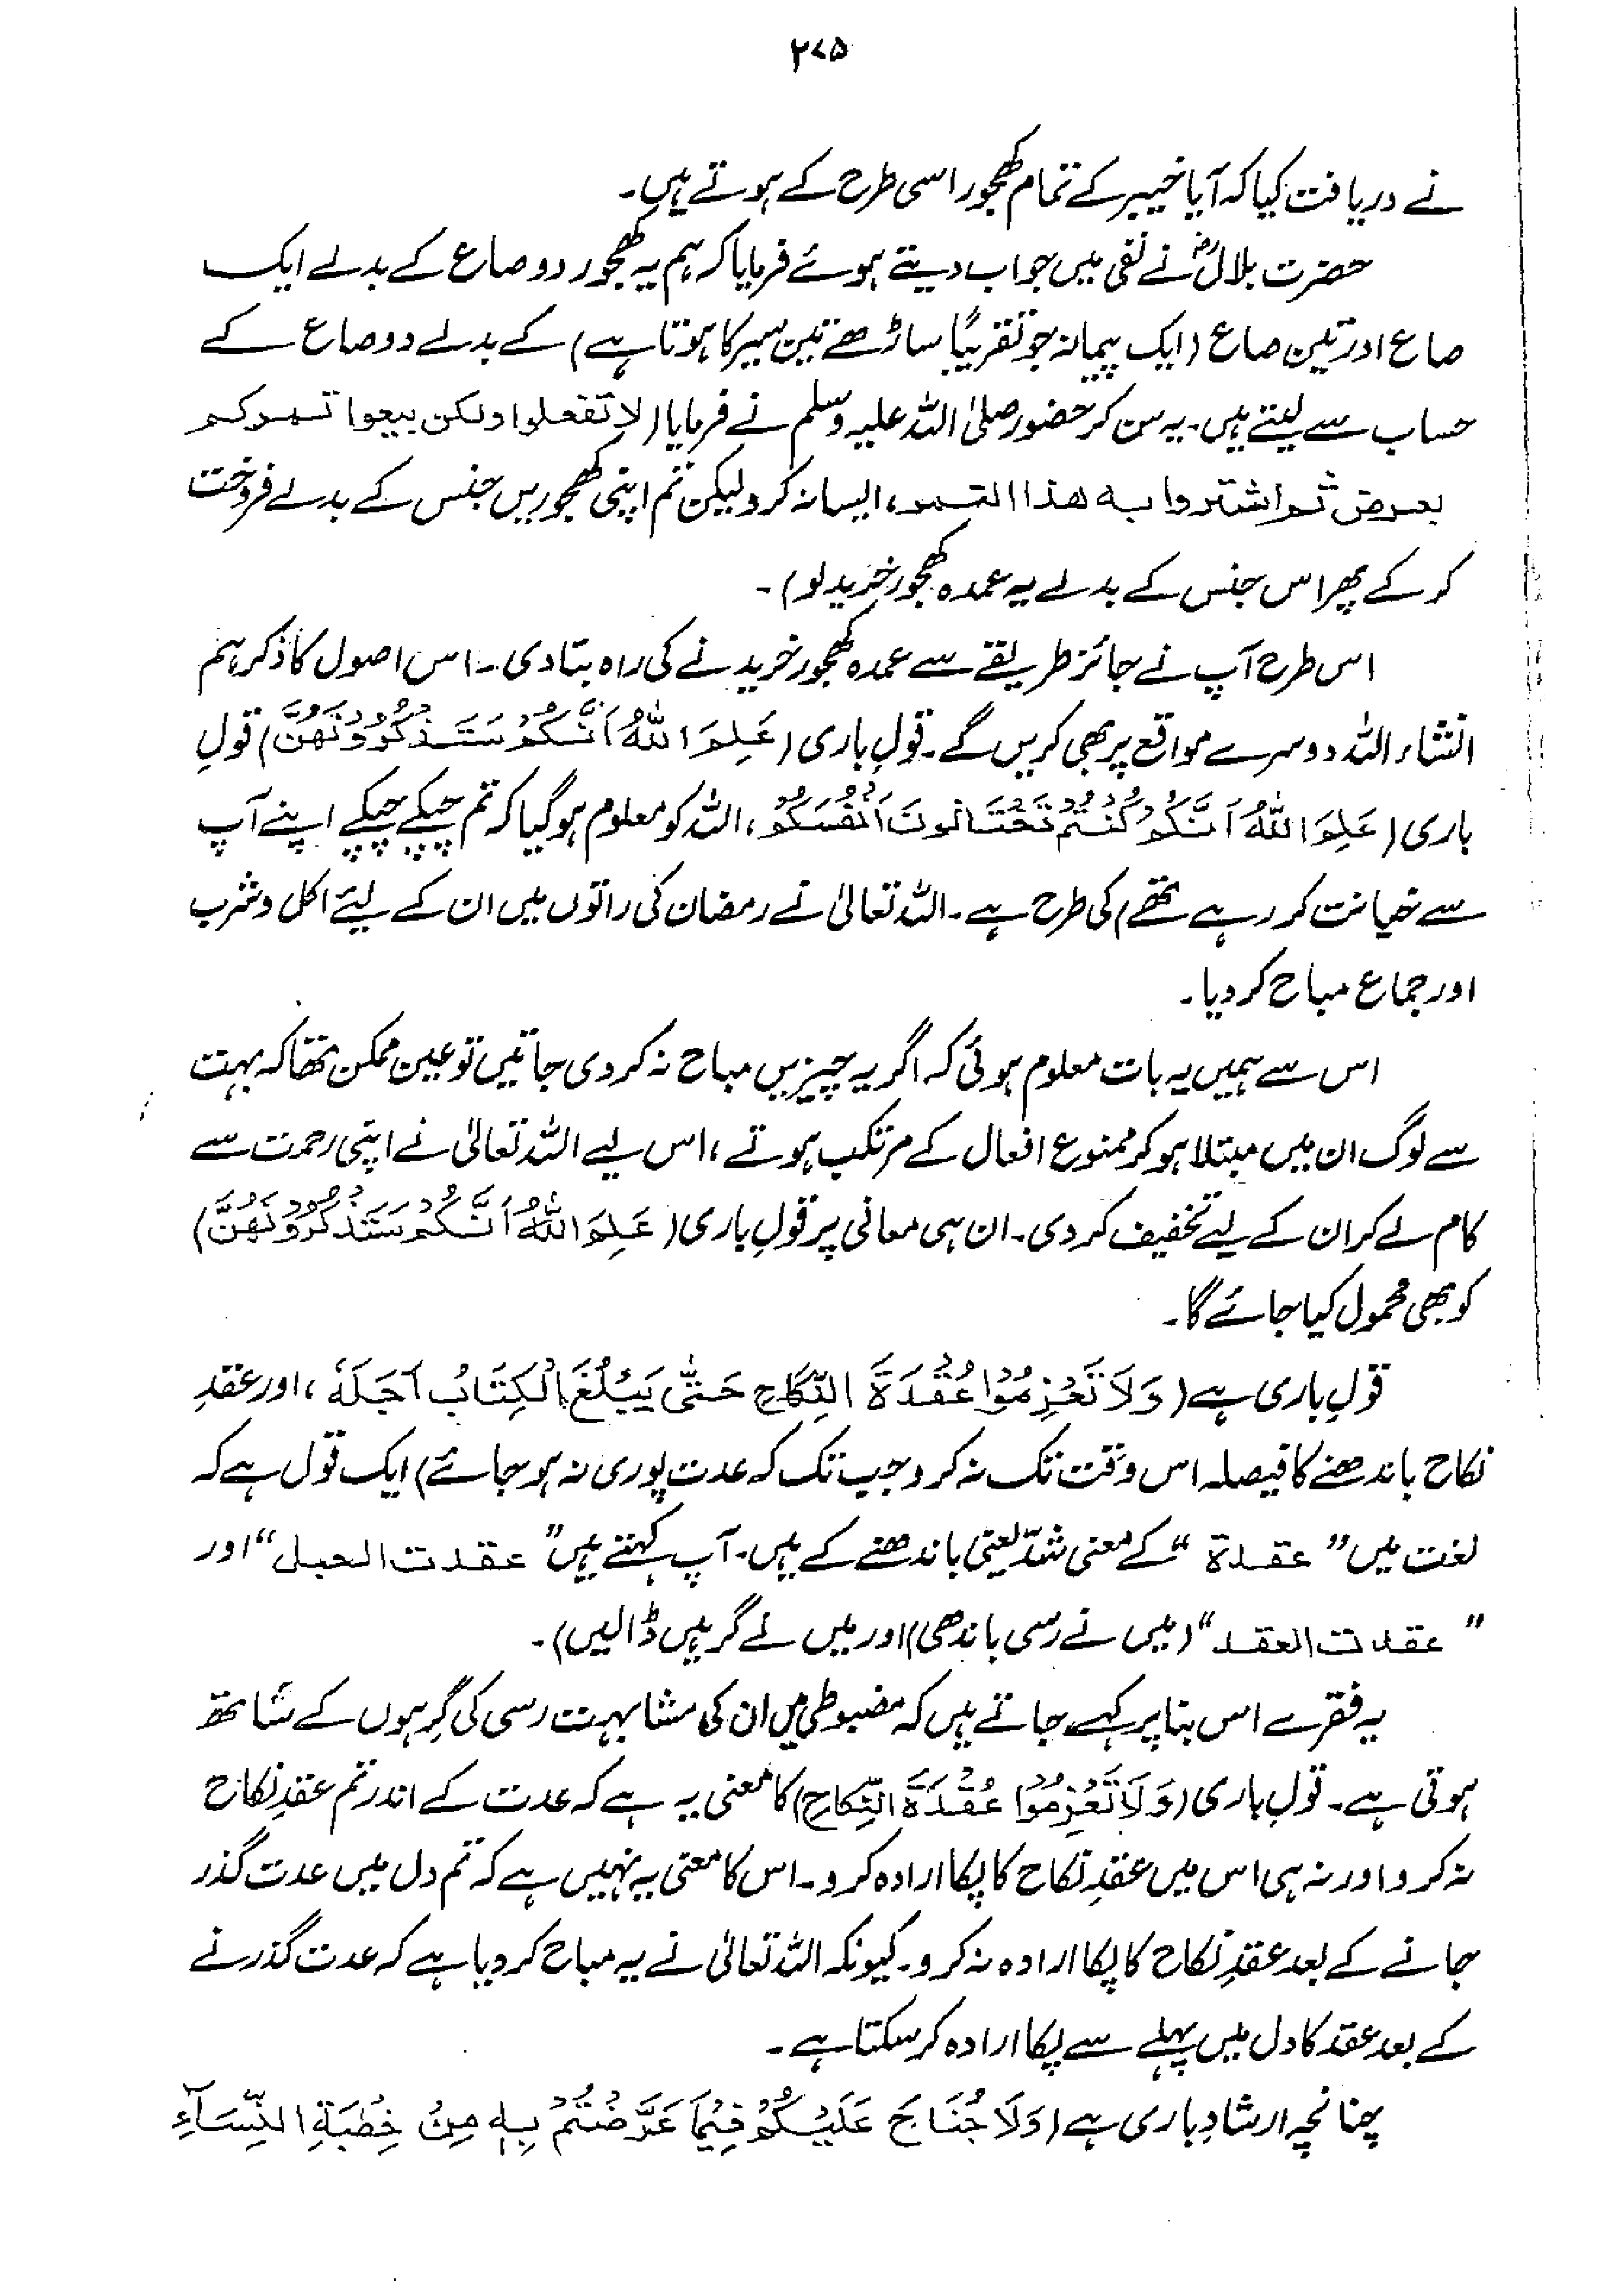 ۲۷۵
نے دریافت کیا کہ آیا خیبر کے تمام کھجور اسی طرح کے ہوتے ہیں۔
حضرت بلالؓ نے نفی میں جواب دیتے ہوئے فرمایا کہ ہم یہ کھجور دو صاع کے بدلے ایک
صاع اور تین صاع (ایک پیمانہ جو تقریباً ساڑھے تین سیر کا ہوتا ہے) کے بدلے دو صاع کے
حساب سے لیتے ہیں۔ یہ سن کر حضور صلی اللہ علیہ وسلم نے فرمایا (لا تفعلوا ولکن بیعوا تمرکم
بعرض ثم اشتروا بہ ھذا التمر، ایسا نہ کرو لیکن تم اپنی کھجوریں جنس کے بدلے فروخت
کر کے پھر اس جنس کے بدلے یہ عمدہ کھجور خرید لو)۔
اس طرح آپ نے جائز طریقے سے عمدہ کھجور خریدنے کی راہ بتا دی۔ اس اصول کا ذکر ہم
انشاء اللہ دوسرے مواقع پر بھی کریں گے۔ قولِ باری (عَلِمَ اللّٰہُ اَنَّکُمْ سَتَذْکُرُوْنَھُنَّ) قولِ
باری (عَلِمَ اللّٰہُ اَنَّکُمْ کُنْتُمْ تَخْتَانُونَ اَنْفُسَکُمْ، اللہ کو معلوم ہو گیا کہ تم چپکے چپکے اپنے آپ
سے خیانت کر رہے تھے) کی طرح ہے۔ اللہ تعالیٰ نے رمضان کی راتوں میں ان کے لیئے اکل و شرب
اور جماع مباح کر دیا۔
اس سے ہمیں یہ بات معلوم ہوئی کہ اگر یہ چیزیں مباح نہ کر دی جاتیں تو عین ممکن تھا کہ بہت
سے لوگ ان میں مبتلا ہو کر ممنوع افعال کے مرتکب ہوتے، اس لیے اللہ تعالیٰ نے اپنی رحمت سے
کام لے کر ان کے لیے تخفیف کر دی۔ ان ہی معانی پر قولِ باری (عَلِمَ اللّٰہُ اَنَّکُمْ سَتَذْکُرُوْنَھُنَّ)
کو بھی محمول کیا جائے گا۔
قولِ باری ہے (وَلَا تَعْزِمُوْا عُقْدَةَ النِّکَاحِ حَتّٰی یَبْلُغَ الْکِتَابُ اَجَلَہٗ، اور عقدِ
نکاح باندھنے کا فیصلہ اس وقت تک نہ کرو جب تک کہ عدت پوری نہ ہو جائے) ایک قول ہے کہ
لغت میں ”عقدة“ کے معنی شدّ یعنی باندھنے کے ہیں۔ آپ کہتے ہیں ”عقدت الحبل“ اور
”عقدت العقد“ (میں نے رسی باندھی) اور میں نے گرہیں ڈالیں)۔
یہ فقرے اس بنا پر کہے جاتے ہیں کہ مضبوطی میں ان کی مشابہت رسی کی گِرہوں کے ساتھ
ہوتی ہے۔ قولِ باری (وَلَا تَعْزِمُوْا عُقْدَةَ النِّکَاحِ) کا معنی یہ ہے کہ عدت کے اندر تم عقدِ نکاح
نہ کرو اور نہ ہی اس میں عقدِ نکاح کا پکا ارادہ کرو۔ اس کا معنی یہ نہیں ہے کہ تم دل میں عدت گذر
جانے کے بعد عقدِ نکاح کا پکا ارادہ نہ کرو۔ کیونکہ اللہ تعالیٰ نے یہ مباح کر دیا ہے کہ عدت گذرنے
کے بعد عقد کا دل میں پہلے سے پکا ارادہ کر سکتا ہے۔
چنانچہ ارشادِ باری ہے (وَلَا جُنَاحَ عَلَیْکُمْ فِیْمَا عَرَّضْتُمْ بِہٖ مِنْ خِطْبَةِ النِّسَآءِ